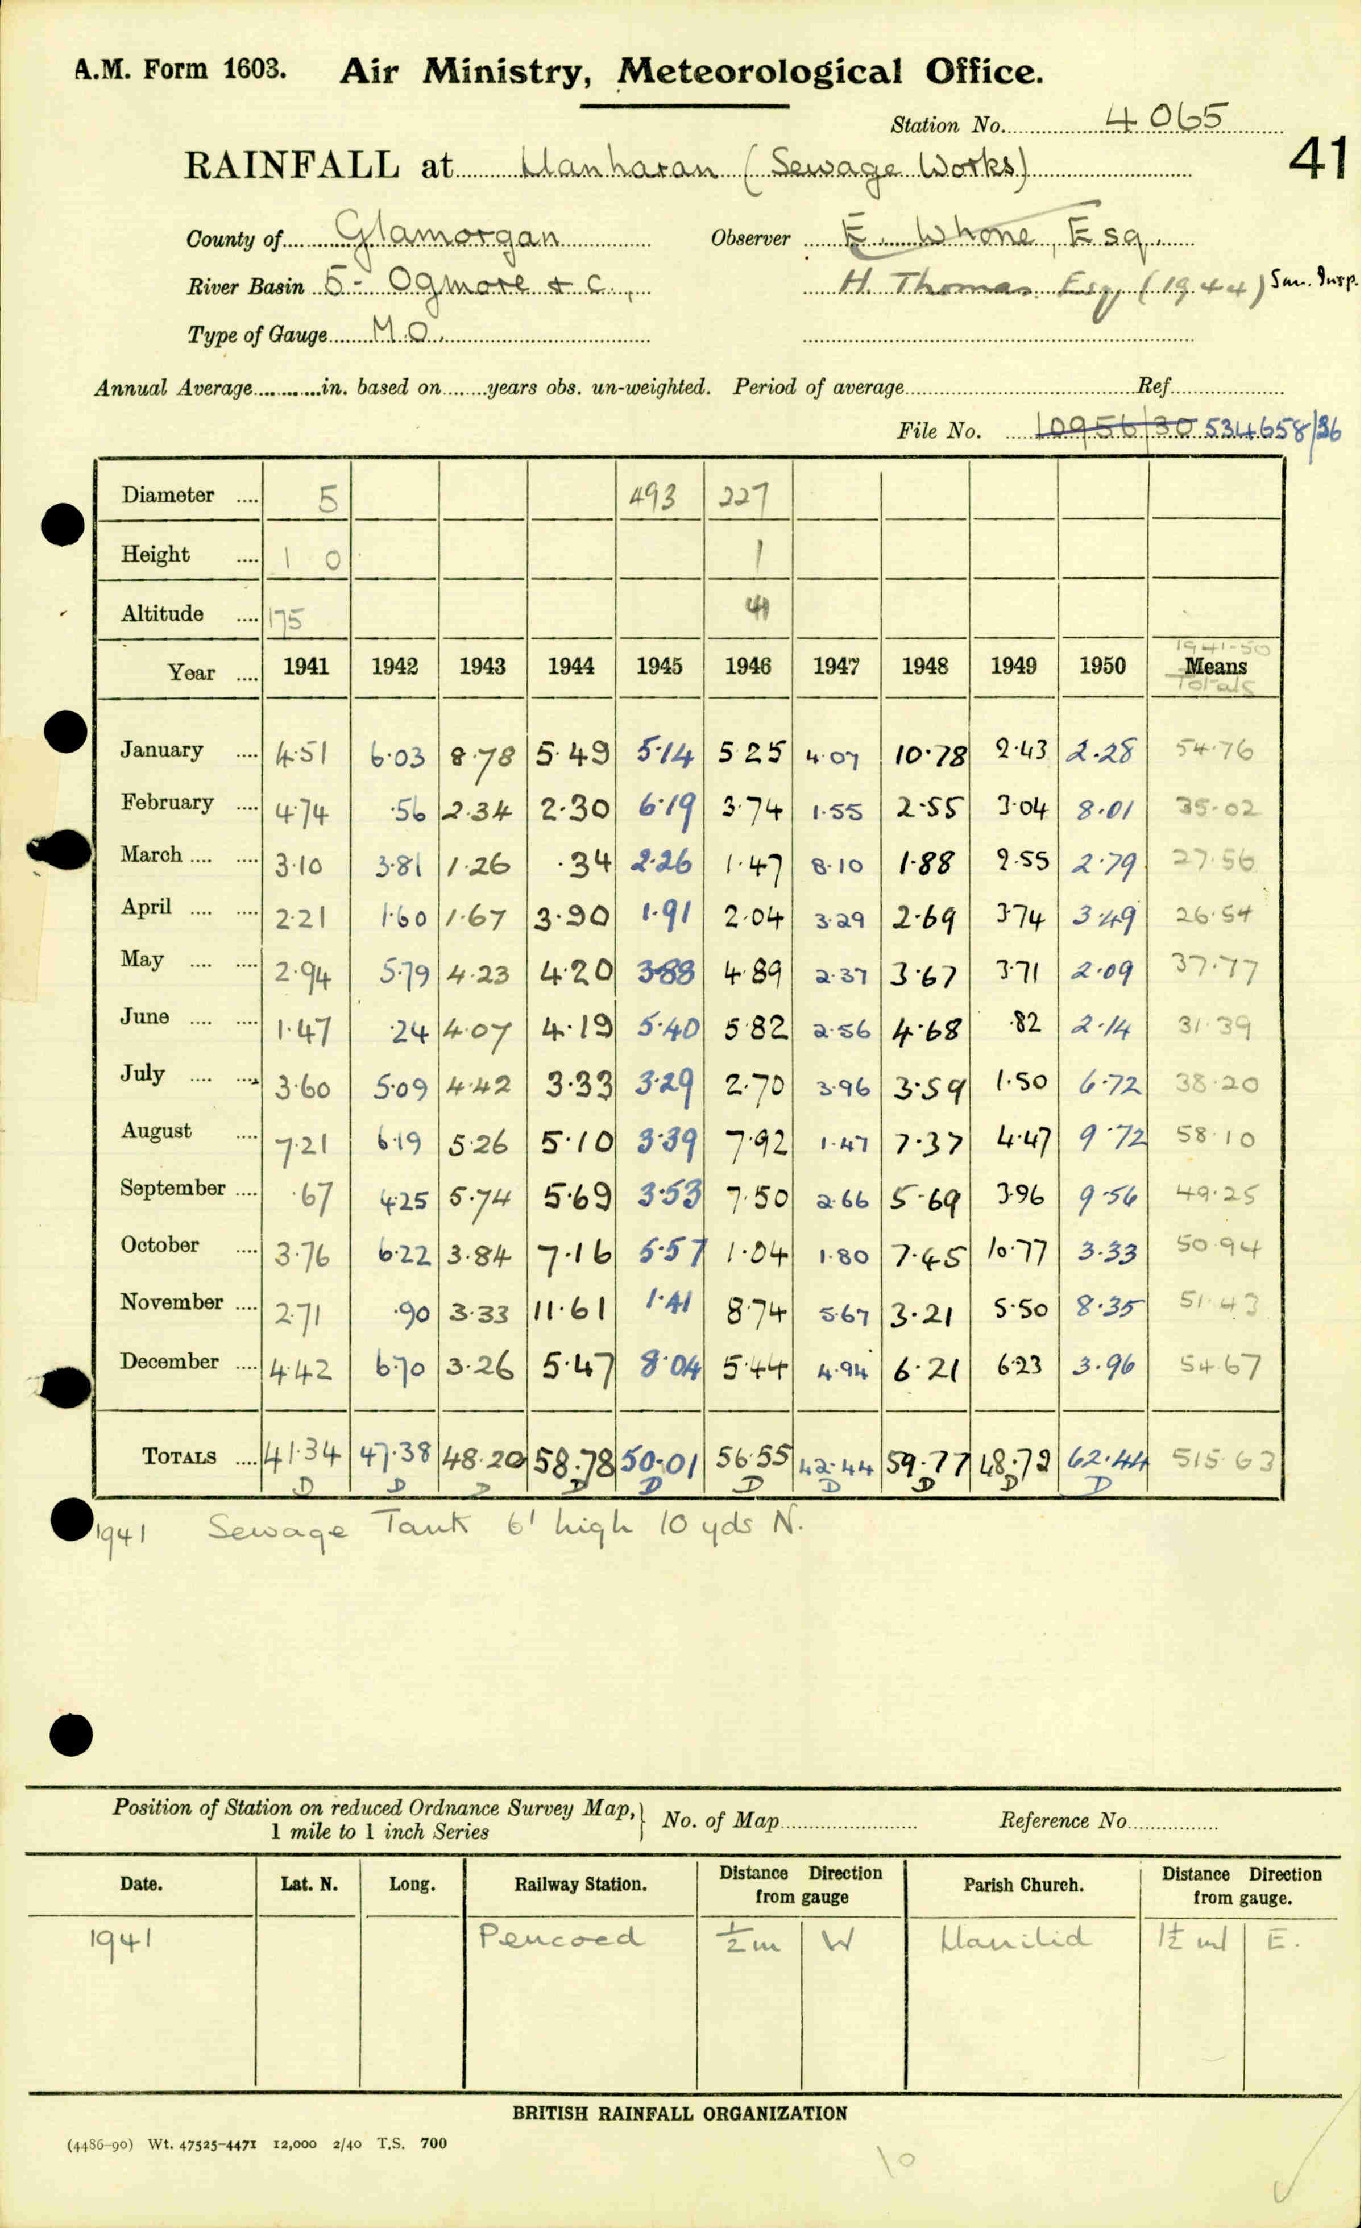 A.M. Form 1603. Air Ministry, Meteorological Office.
Station No. 4065
41
RAINFALL at Llanharan (Sewage Works)
County of Glamorgan Observer E. Whone, Esq.
River Basin 5 - Ogmore & c., H. Thomas Esq (1944) San. Insp.
Type of Gauge M.O.
Annual Average in. based on years obs. un-weighted. Period of average Ref.
File No. 10956/30 534658/36
Diameter 5 493 227
Height 1 0 1
Altitude 175
1941-50
Year 1941 1942 1943 1944 1945 1946 1947 1948 1949 1950 Means
Totals
January 4.51 6.03 8.78 5.49 5.14 5.25 4.07 10.78 2.43 2.28 54.76
February 4.74 .56 2.34 2.30 6.19 3.74 1.55 2.55 3.04 8.01 35.02
March 3.10 3.81 1.26 .34 2.26 1.47 8.10 1.88 2.55 2.79 27.56
April 2.21 1.60 1.67 3.90 1.91 2.04 3.29 2.69 3.74 3.49 26.54
May 2.94 5.79 4.23 4.20 3.88 4.89 2.37 3.67 3.71 2.09 37.77
June 1.47 .24 4.07 4.19 5.40 5.82 2.56 4.68 .82 2.14 31.39
July 3.60 5.09 4.42 3.33 3.29 2.70 3.96 3.59 1.50 6.72 38.20
August 7.21 6.19 5.26 5.10 3.39 7.92 1.47 7.37 4.47 9.72 58.10
September .67 4.25 5.74 5.69 3.53 7.50 2.66 5.69 3.96 9.56 49.25
October 3.76 6.22 3.84 7.16 5.57 1.04 1.80 7.45 10.77 3.33 50.94
November 2.71 .90 3.33 11.61 1.41 8.74 5.67 3.21 5.50 8.35 51.43
December 4.42 6.70 3.26 5.47 8.04 5.44 4.94 6.21 6.23 3.96 54.67
TOTALS 41.34 47.38 48.20 58.78 50.01 56.55 42.44 59.77 48.72 62.44 515.63
D D D D D D D D D D
1941 Sewage Tank 6' high 10 yds N.
Position of Station on reduced Ordnance Survey Map, } No. of Map Reference No.
1 mile to 1 inch Series
Date. Lat. N. Long. Railway Station. Distance Direction from gauge Parish Church. Distance Direction from gauge.
1941 Pencoed 1/2 m W Llanilid 1 1/2 ml E.
BRITISH RAINFALL ORGANIZATION
(4486-90) Wt. 47525-4471 12,000 2/40 T.S. 700
10